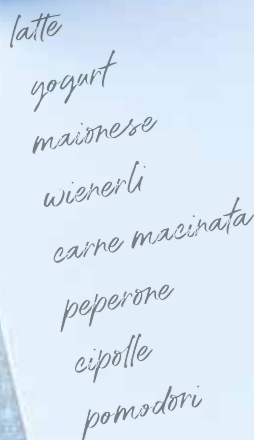 latte
yogurt
maionese
wienerli
carne macinata
peperone
cipolle
pomodori